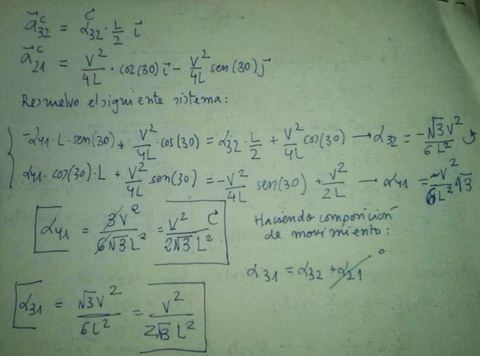 a⃗ᶜ₃₂ = α₃₂ · L/2 i⃗
a⃗ᶜ₂₁ = V²/4L · cos(30) i⃗ - V²/4L sen(30) j⃗
Resuelvo el siguiente sistema:
-α₄₁ · L · sen(30) + V²/4L · cos(30) = α₃₂ · L/2 + V²/4L cos(30) → α₃₂ = -√3V²/6L²
α₄₁ · cos(30) · L + V²/4L sen(30) = -V²/4L sen(30) + V²/2L → α₄₁ =
α₄₁ = 3V²/6√3L² = V²/2√3L²
Haciendo composición
de movimiento:
α₃₁ = α₃₂ + α₂₁ 0
α₃₁ = √3V²/6L² = V²/2√3L²